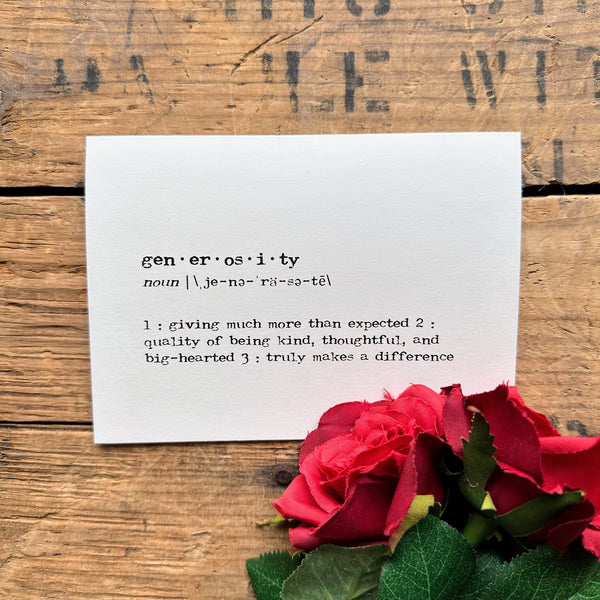 gen·er·os·i·ty
noun |\ˌje-nə-ˈrä-sə-tē\
1 : giving much more than expected 2 :
quality of being kind, thoughtful, and
big-hearted 3 : truly makes a difference